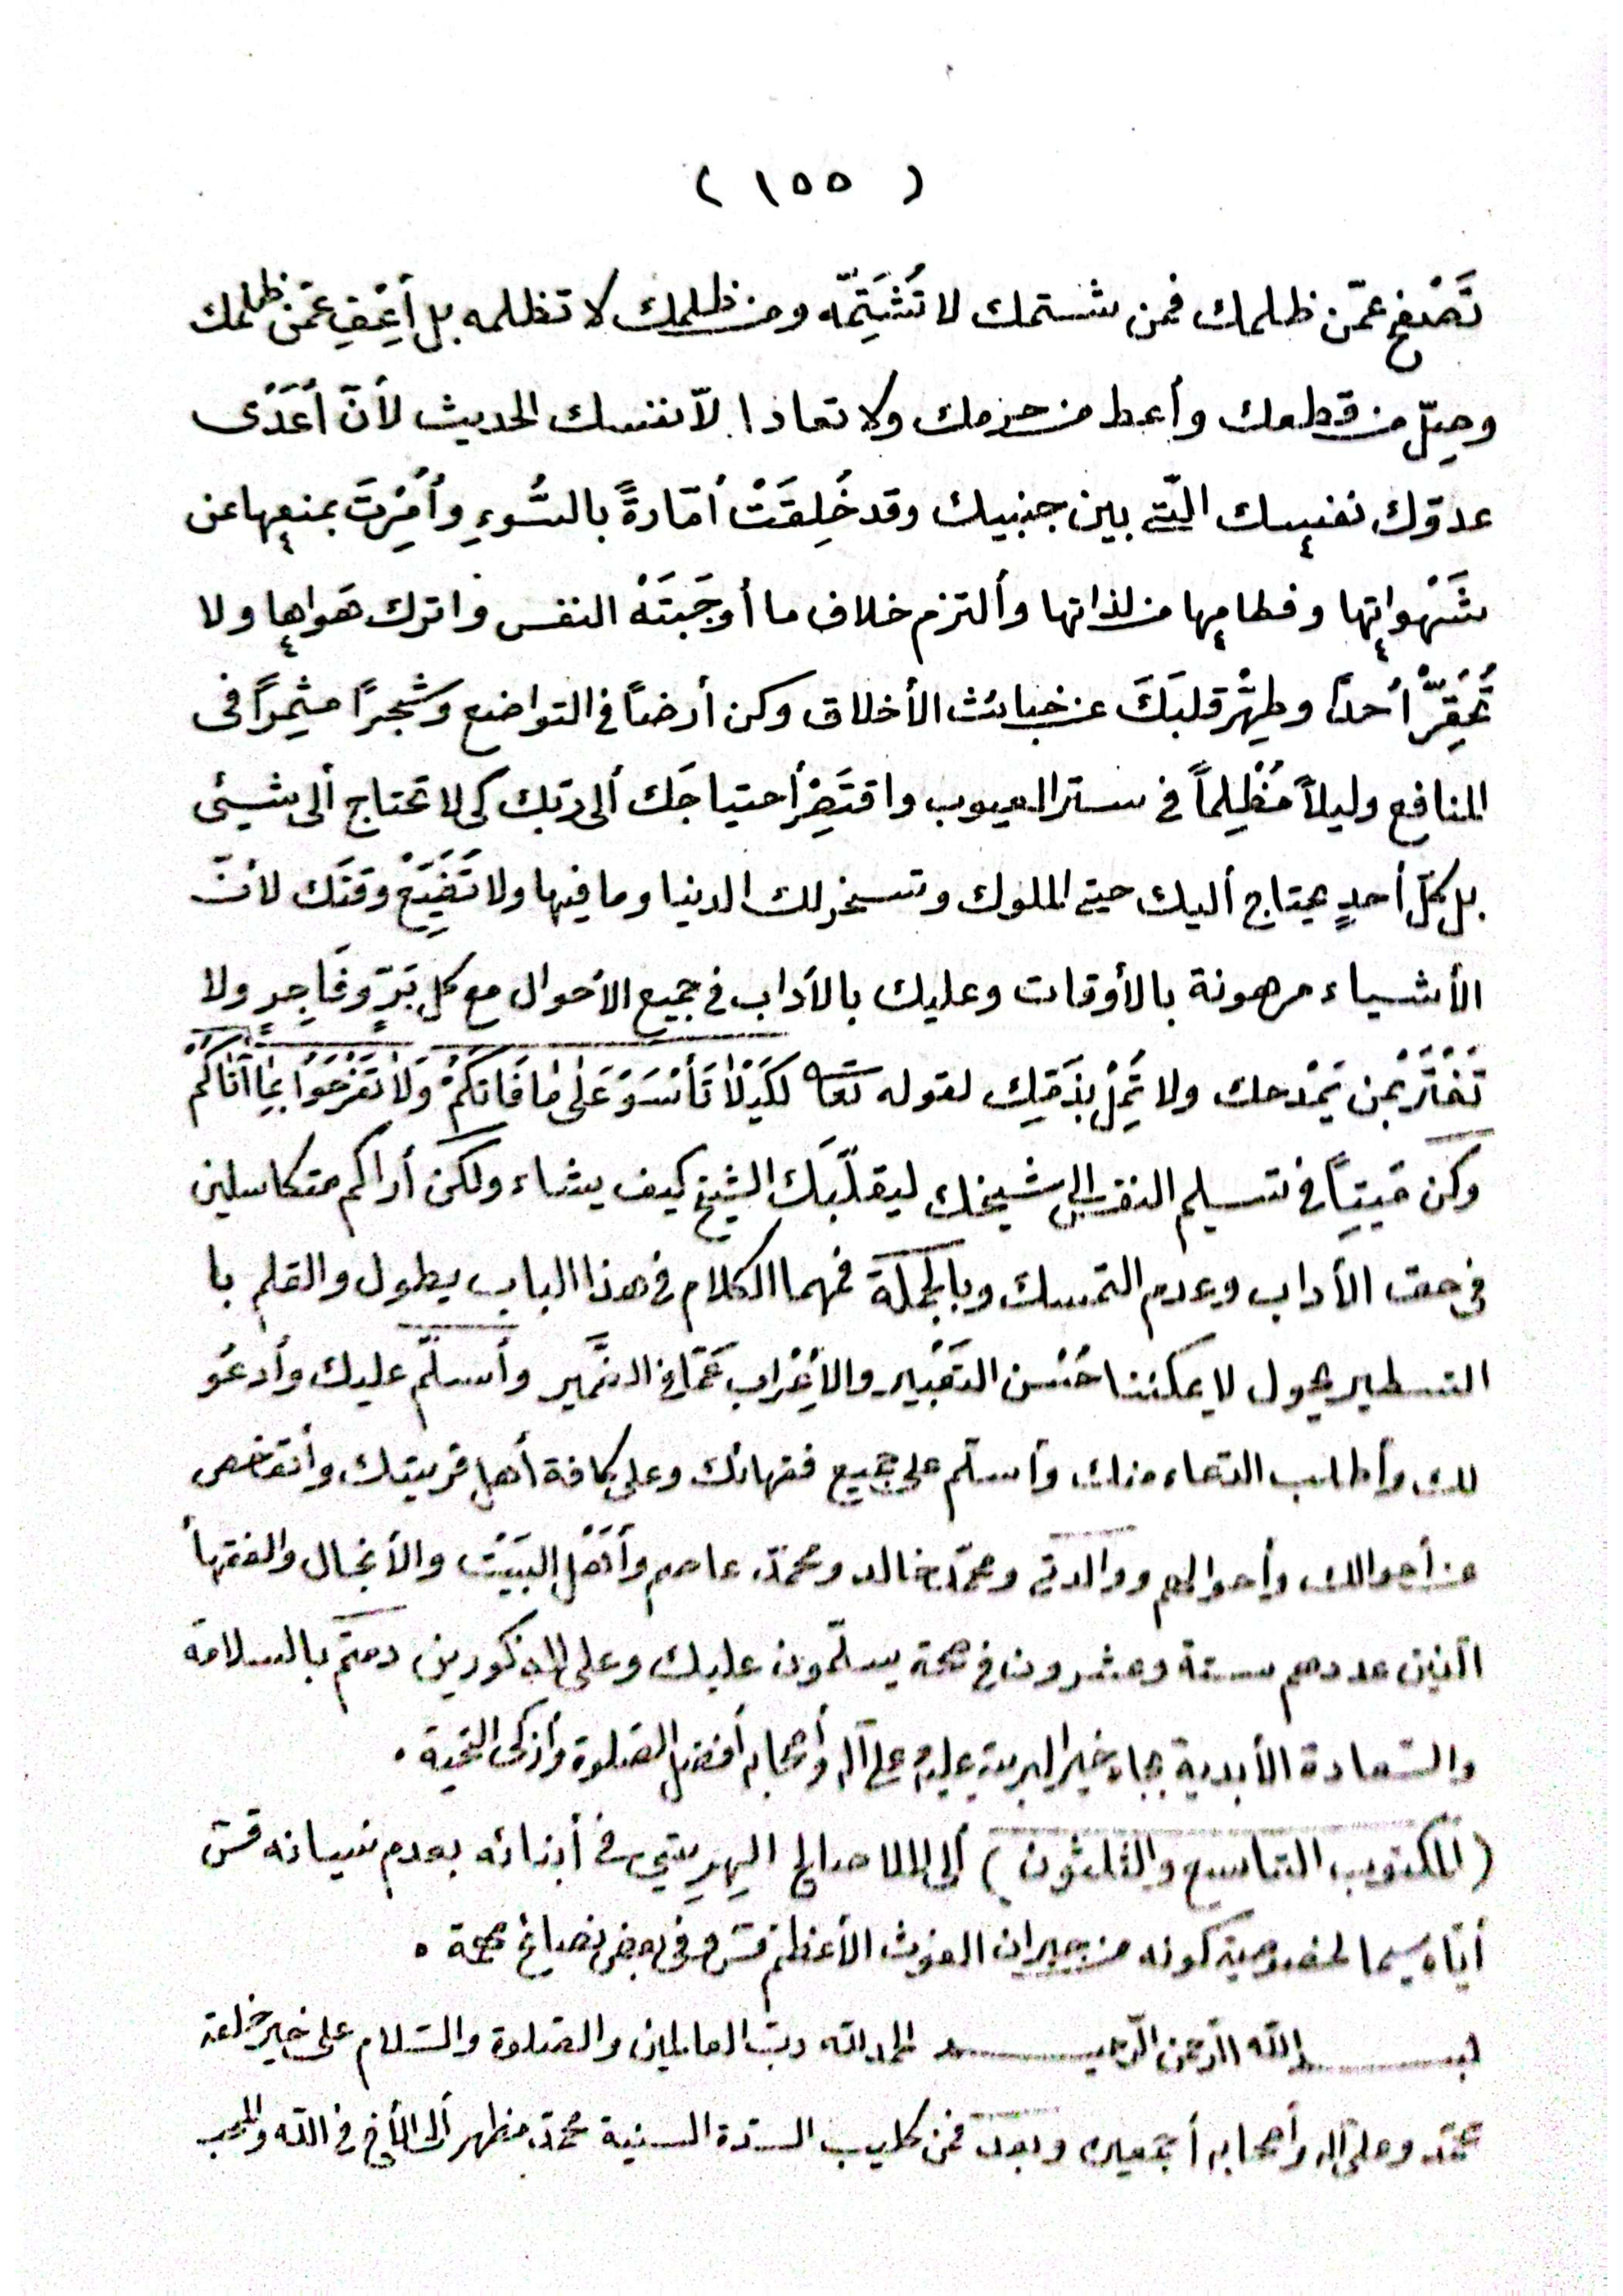 ( ١٥٥ )
تَصْفح عمّن ظلمك فمن شتمك لا تُشَتِمّه ومن ظلمك لا تظلمه بل أعِفِ عَمّن ظلمك
وصِلّ من قطعك وأعط من حرمك ولا تعاد الّا نفسك الحديث لأنّ أعْدَى
عدوّك نفسك الّتى بين جنبيك وقد خُلِقَتْ أمّارةً بالسُّوءِ وأُمِرْتَ بمنعها عن
شَهْواتها وفطامها من لذاتها وألتزم خلاف ما أوجَبَتَهْ النفس واترك هَواها ولا
تُحَقِرّْ أحداً وطهِّرْ قلبَكَ عن خبائث الأخلاق وكن أرضاً فى التواضع وشجراً مثمِراً فى
المنافع وليلاً مُظْلِماً فى ستر العيوب واقتَصِرْ أحتياجَك ألى ربّك كى لا تحتاج ألى شيئى
بل كلّ أحدٍ يحتاج أليك حتى الملوك وتسخر لك الدنيا وما فيها ولا تَضَيِّعْ وقتَك لأنّ
الأشياء مرهونة بالأوقات وعليك بالآداب فى جميع الاحوال مع كل بَرٍّ وفَاجِرٍ ولا
تَغْتَرّْ بمن يَمْدحك ولا تَمِلْ بذَمّك لقوله تعا لكَيْلَا تَأْسَوْ عَلٰى مَا فَاتَكُمْ وَلَا تَفْرَحُوا بِمَا آتَاكُم
وكن مَيِتاً فى تسليم النفس إلى شيخك ليقلّبَك الشيخ كيف يشاء ولكن أراكم متكاسلين
فى حق الأداب وعدم التمسك وبالجملة فمهما الكلام فى هذا الباب يطول والقلم با
التسطير يحول لا يمكننا حُسْن التَعْبير والأِعْراب عَمّا فى الضَّمير وأسلّم عليك وأدعُو
لك وأطلب الدّعاء منك وأسلّم على جميع فقهائك وعلى كافة أهل قريتك وأتفحص
عن أحوالك وأحوالهم ووالدتى ومحمّد خالد ومحمّد عاصم وأهْل البَيْت والأنجال والفقهأ
الّذين عددهم ستة وعشرون فى صحة يسلّمون عليك وعلى المذكورين دمتم بالسلامة
والسّعادة الأبدية بجاه خير البرية عليه وعلى آله وأصحابه أفضل الصّلوة وأزكى التحية .
( المكتوب التاسع والثلثون ) ألى الملا صالح فى أبنائه بعدم نسيانه قس
أيّاه سيما لخصوصية كونه من جيران الغوث الأعظم قس وفى بعض نصائح مهمة .
بسم الله الرّحمن الرّحيم الحمد لله ربّ العالمين والصّلوة والسّلام على خير خلقه
محمّد وعلى آله وأصحابه أجمعين وبعد فمن كليب السّدة السنية محمّد مظهر ألى الأخ فى الله والمحب